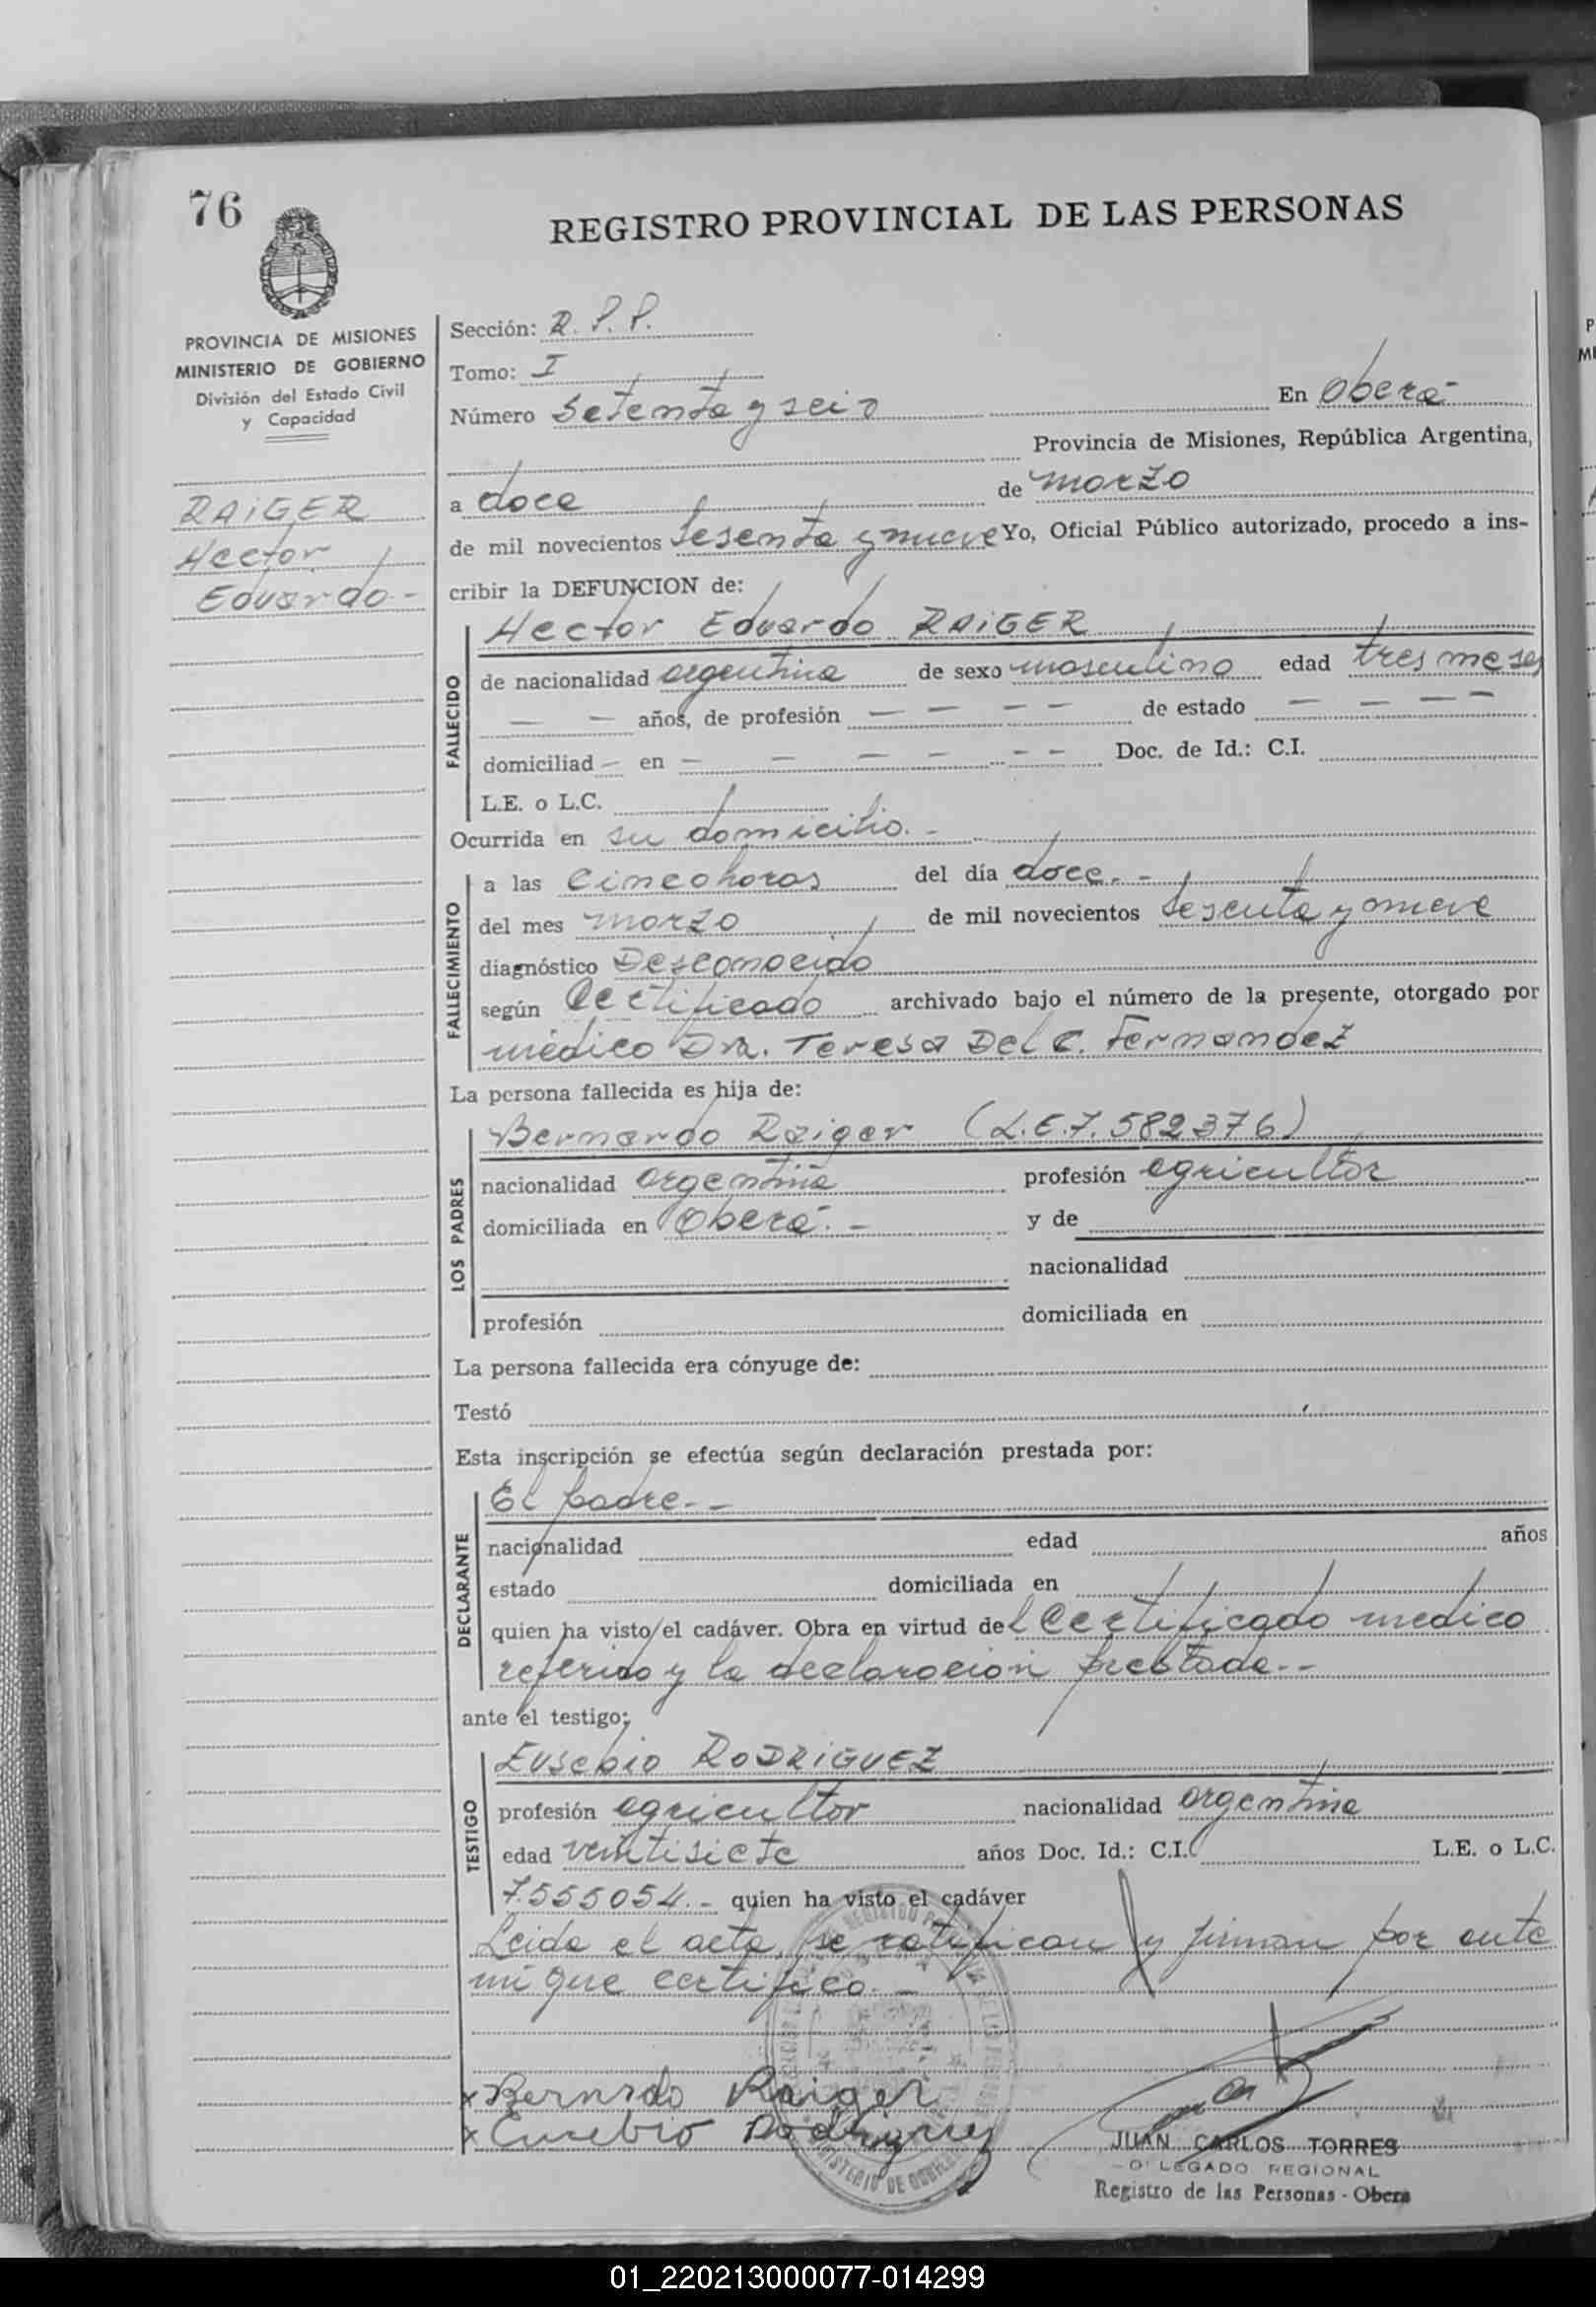 76
REGISTRO PROVINCIAL DE LAS PERSONAS
PROVINCIA DE MISIONES
MINISTERIO DE GOBIERNO
División del Estado Civil
y Capacidad
RAiGER
Hector
Eduardo -
Sección: R. P. P.
Tomo: I
Número Setenta y seis En Oberá -
Provincia de Misiones, República Argentina,
a doce de marzo
de mil novecientos sesenta y nueve Yo, Oficial Público autorizado, procedo a ins-
cribir la DEFUNCION de:
FALLECIDO
Hector Eduardo RAiGER
de nacionalidad argentina de sexo masculino edad tres meses
— — años, de profesión — — — — de estado — — — —
domiciliad — en — — — — — — Doc. de Id.: C.I.
L.E. o L.C.
Ocurrida en su domicilio. -
FALLECIMIENTO
a las cinco horas del día doce. -
del mes marzo de mil novecientos sesenta y nueve
diagnóstico Desconocido
según Certificado archivado bajo el número de la presente, otorgado por
médico Dra. Teresa Del C. Fernandez
La persona fallecida es hija de:
LOS PADRES
Bernardo Raiger (L.E.7.582376)
nacionalidad argentina profesión agricultor
domiciliada en Oberá. - y de
nacionalidad
profesión domiciliada en
La persona fallecida era cónyuge de:
Testó
Esta inscripción se efectúa según declaración prestada por:
DECLARANTE
El padre. -
nacionalidad edad años
estado domiciliada en
quien ha visto el cadáver. Obra en virtud del Certificado medico
referido y la declaración prestada. -
ante el testigo:
TESTIGO
Eusebio RODRiGUEZ
profesión agricultor nacionalidad argentina
edad veintisiete años Doc. Id.: C.I. L.E. o L.C.
7.555054. - quien ha visto el cadáver
Leida el acta, se ratifican y firman por ante
mi que certifico. -
x Bernardo Raiger
x Eusebio Rodriguez
JUAN CARLOS TORRES
LEGADO REGIONAL
Registro de las Personas - Obera
01_220213000077-014299